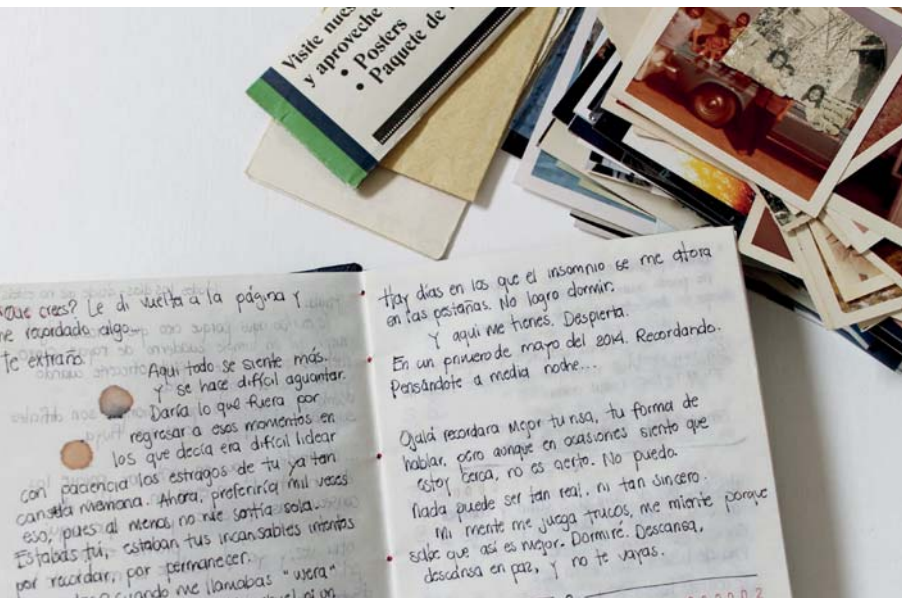 Visite nues
y aproveche
• Posters
• Paquete de
Que crees? Le di vuelta a la página y
he recordado algo...
Te extraño.
Aqui todo se siente más.
y se hace difícil aguantar.
Daría lo que fuera por
regresar a esos momentos en
los que decía era difícil lidear
con paciencia los estragos de tu ya tan
cansada memoria. Ahora, preferiría mil veces
eso, pues al menos no me sentía sola.
Estabas tú, estaban tus incansables intentos
por recordar, por permanecer.
cuando me llamabas "wera"
ni un
Hay dias en los que el insomnio se me atora
en las pestañas. No logro dormir.
Y aqui me tienes. Despierta.
En un primero de mayo del 2014. Recordando.
Pensándote a media noche...
Ojalá recordara mejor tu risa, tu forma de
hablar, pero aunque en ocasiones siento que
estoy cerca, no es cierto. No puedo.
Nada puede ser tan real, ni tan sincero.
Mi mente me juega trucos, me miente porque
sabe que así es mejor. Dormiré. Descansa,
descansa en paz, y no te vayas.